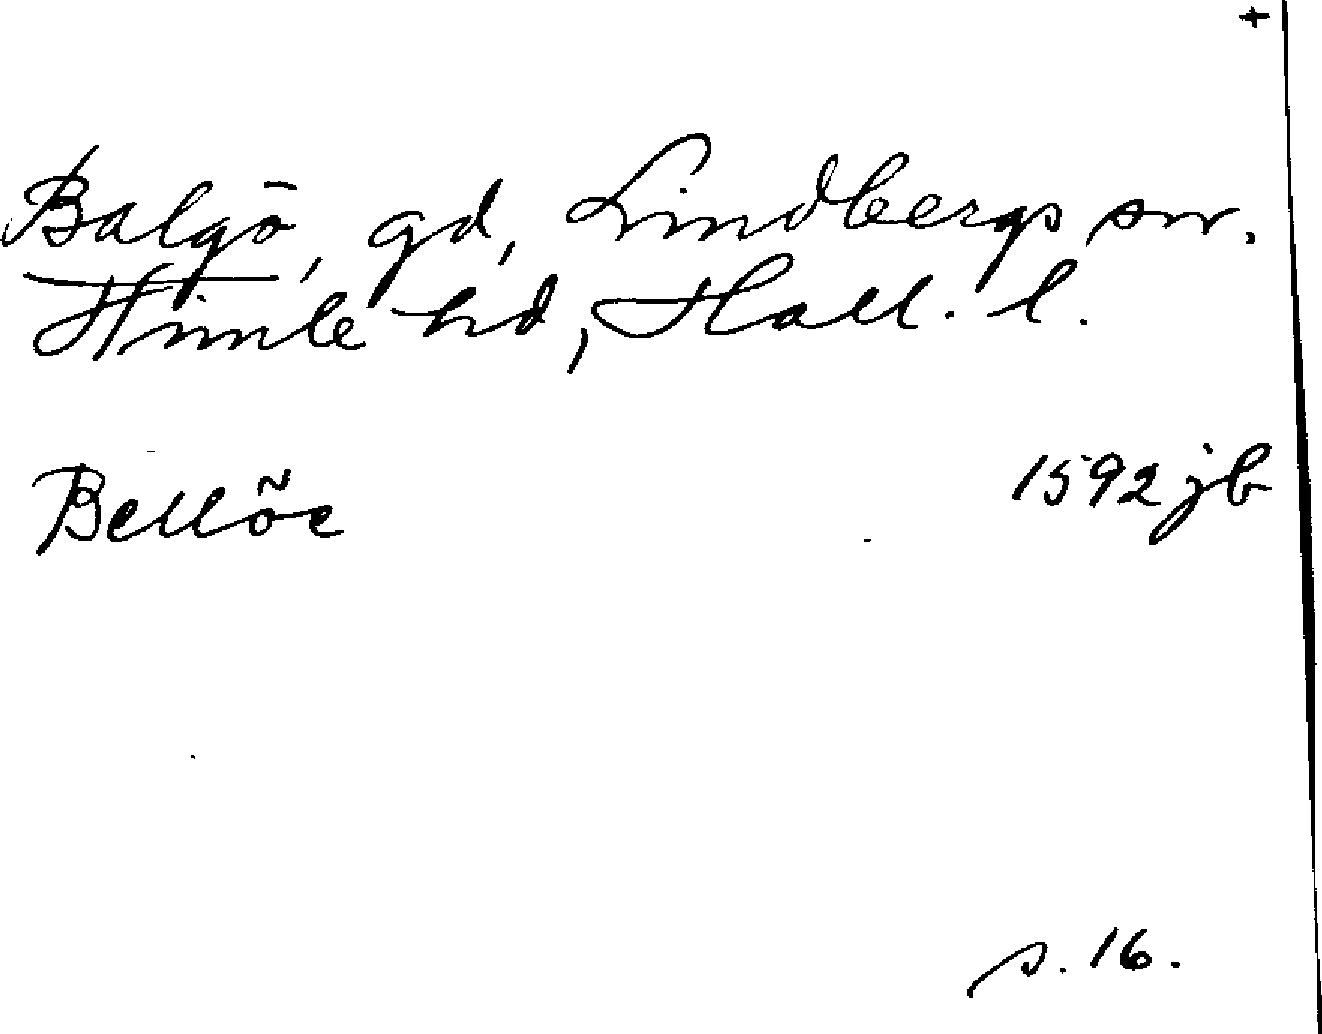 +
Balgö, gd, Lindbergs sn.
Himle hd, Hall. l.
Bellöe 1592 jb
s. 16.